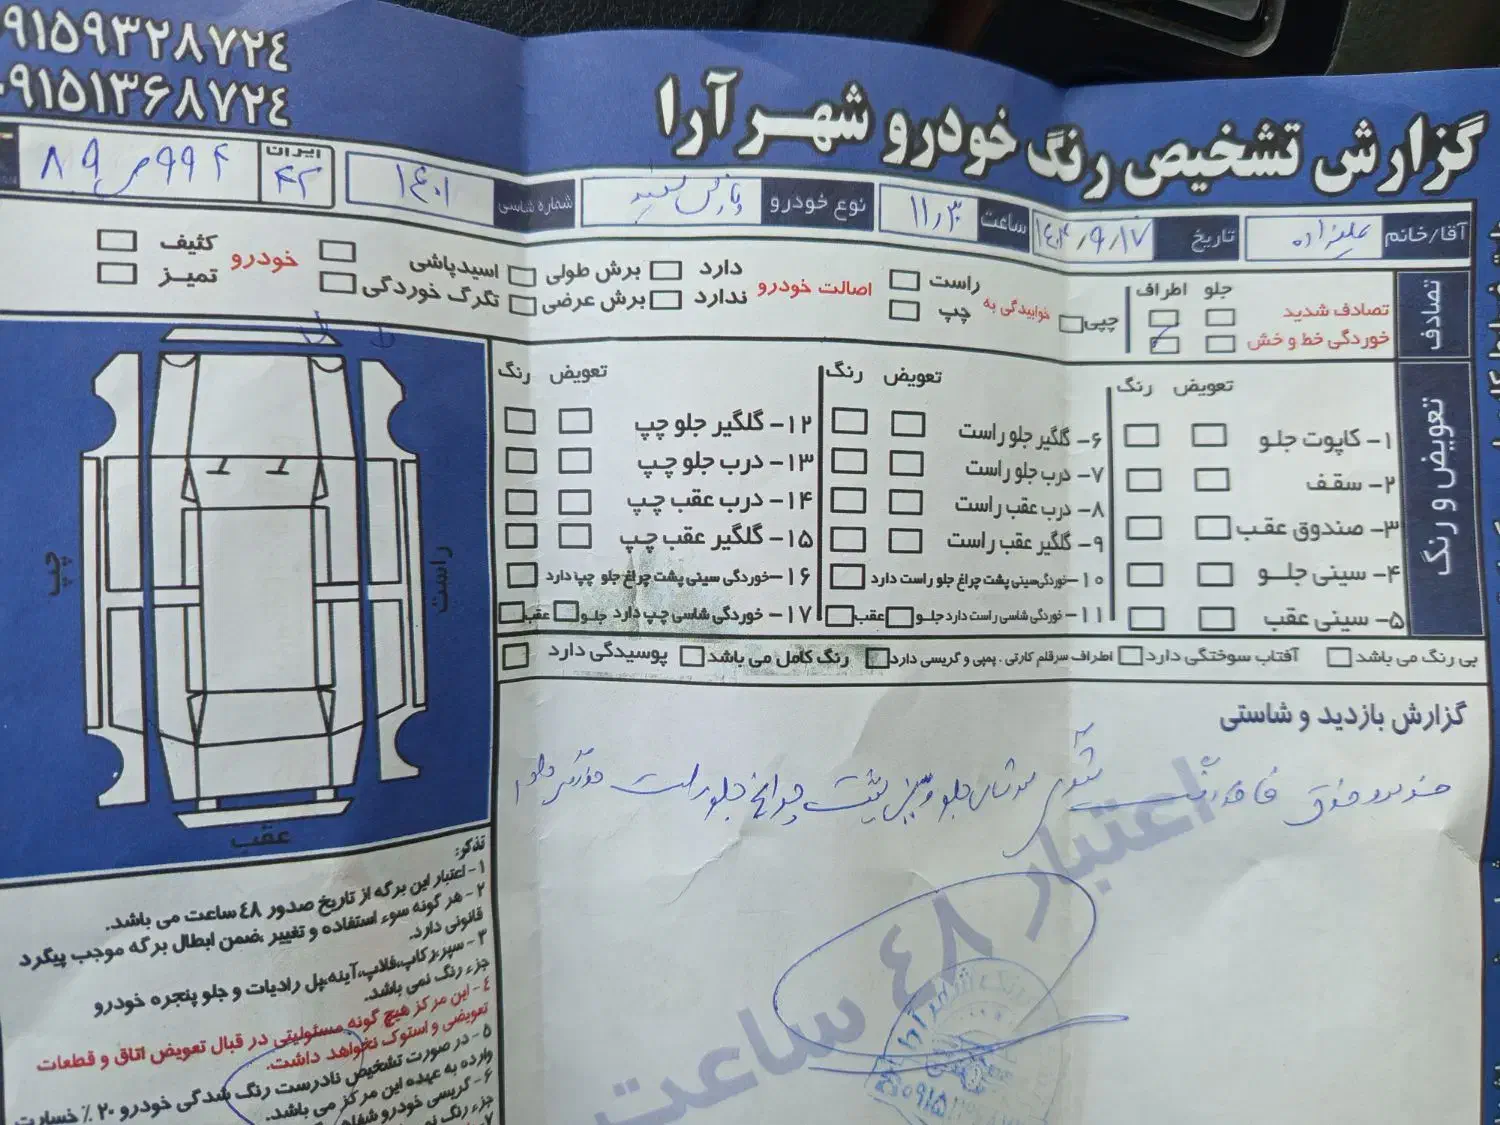 ۰۹۱۵۹۳۲۸۷۲٤
۰۹۱۵۱۳۶۸۷۲٤
گزارش تشخیص رنگ خودرو شهر آرا
آقا/خانم علیزاده تاریخ ۱۴۰۴/۹/۱۷ ساعت ۱۱٫۳۰ نوع خودرو پارس سفید شماره شاسی ۱۴۰۱ ایران ۴۲ ۸۹ ص ۹۹۴
تصادف
جلو اطراف
تصادف شدید
خوردگی خط و خش
چپی
خوابیدگی به راست
چپ
اصالت خودرو دارد
ندارد
برش طولی
برش عرضی
اسیدپاشی
تگرگ خوردگی
خودرو کثیف
تمیز
تعویض و رنگ
تعویض رنگ
۱- کاپوت جلو
۲- سقف
۳- صندوق عقب
۴- سینی جلو
۵- سینی عقب
تعویض رنگ
۶- گلگیر جلو راست
۷- درب جلو راست
۸- درب عقب راست
۹- گلگیر عقب راست
۱۰- خوردگی سینی پشت چراغ جلو راست دارد
۱۱- خوردگی شاسی راست دارد جلو عقب
تعویض رنگ
۱۲- گلگیر جلو چپ
۱۳- درب جلو چپ
۱۴- درب عقب چپ
۱۵- گلگیر عقب چپ
۱۶- خوردگی سینی پشت چراغ جلو چپ دارد
۱۷- خوردگی شاسی چپ دارد جلو عقب
بی رنگ می باشد آفتاب سوختگی دارد اطراف سرقلم کارتی . پمپی و گریسی دارد رنگ کامل می باشد پوسیدگی دارد
چپ
راست
عقب
گزارش بازدید و شاستی
خودرو فوق فاقد رنگ جلو و سینی پشت چراغ جلو راست
اعتبار ٤۸ ساعت
تذکر:
۱- اعتبار این برگه از تاریخ صدور ٤۸ ساعت می باشد.
۲- هر گونه سوء استفاده و تغییر ،ضمن ابطال برگه موجب پیگرد
قانونی دارد.
۳- سپر،رکاب،قلاپ،آینه،پل رادیات و جلو پنجره خودرو
جزء رنگ نمی باشد.
٤- این مرکز هیچ گونه مسئولیتی در قبال تعویض اتاق و قطعات
تعویضی و استوک نخواهد داشت.
۵- در صورت تشخیص نادرست رنگ شدگی خودرو ۲۰٪ خسارت
وارده به عهده این مرکز می باشد.
۶- گریسی خودرو
جزء رنگ